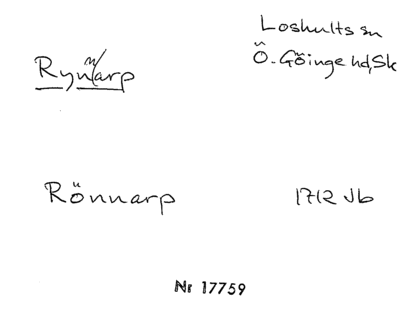 Rynnarp
Loshults sn
Ö. Göinge hd, Sk
Rönnarp
1712 Jb
Nr 17759